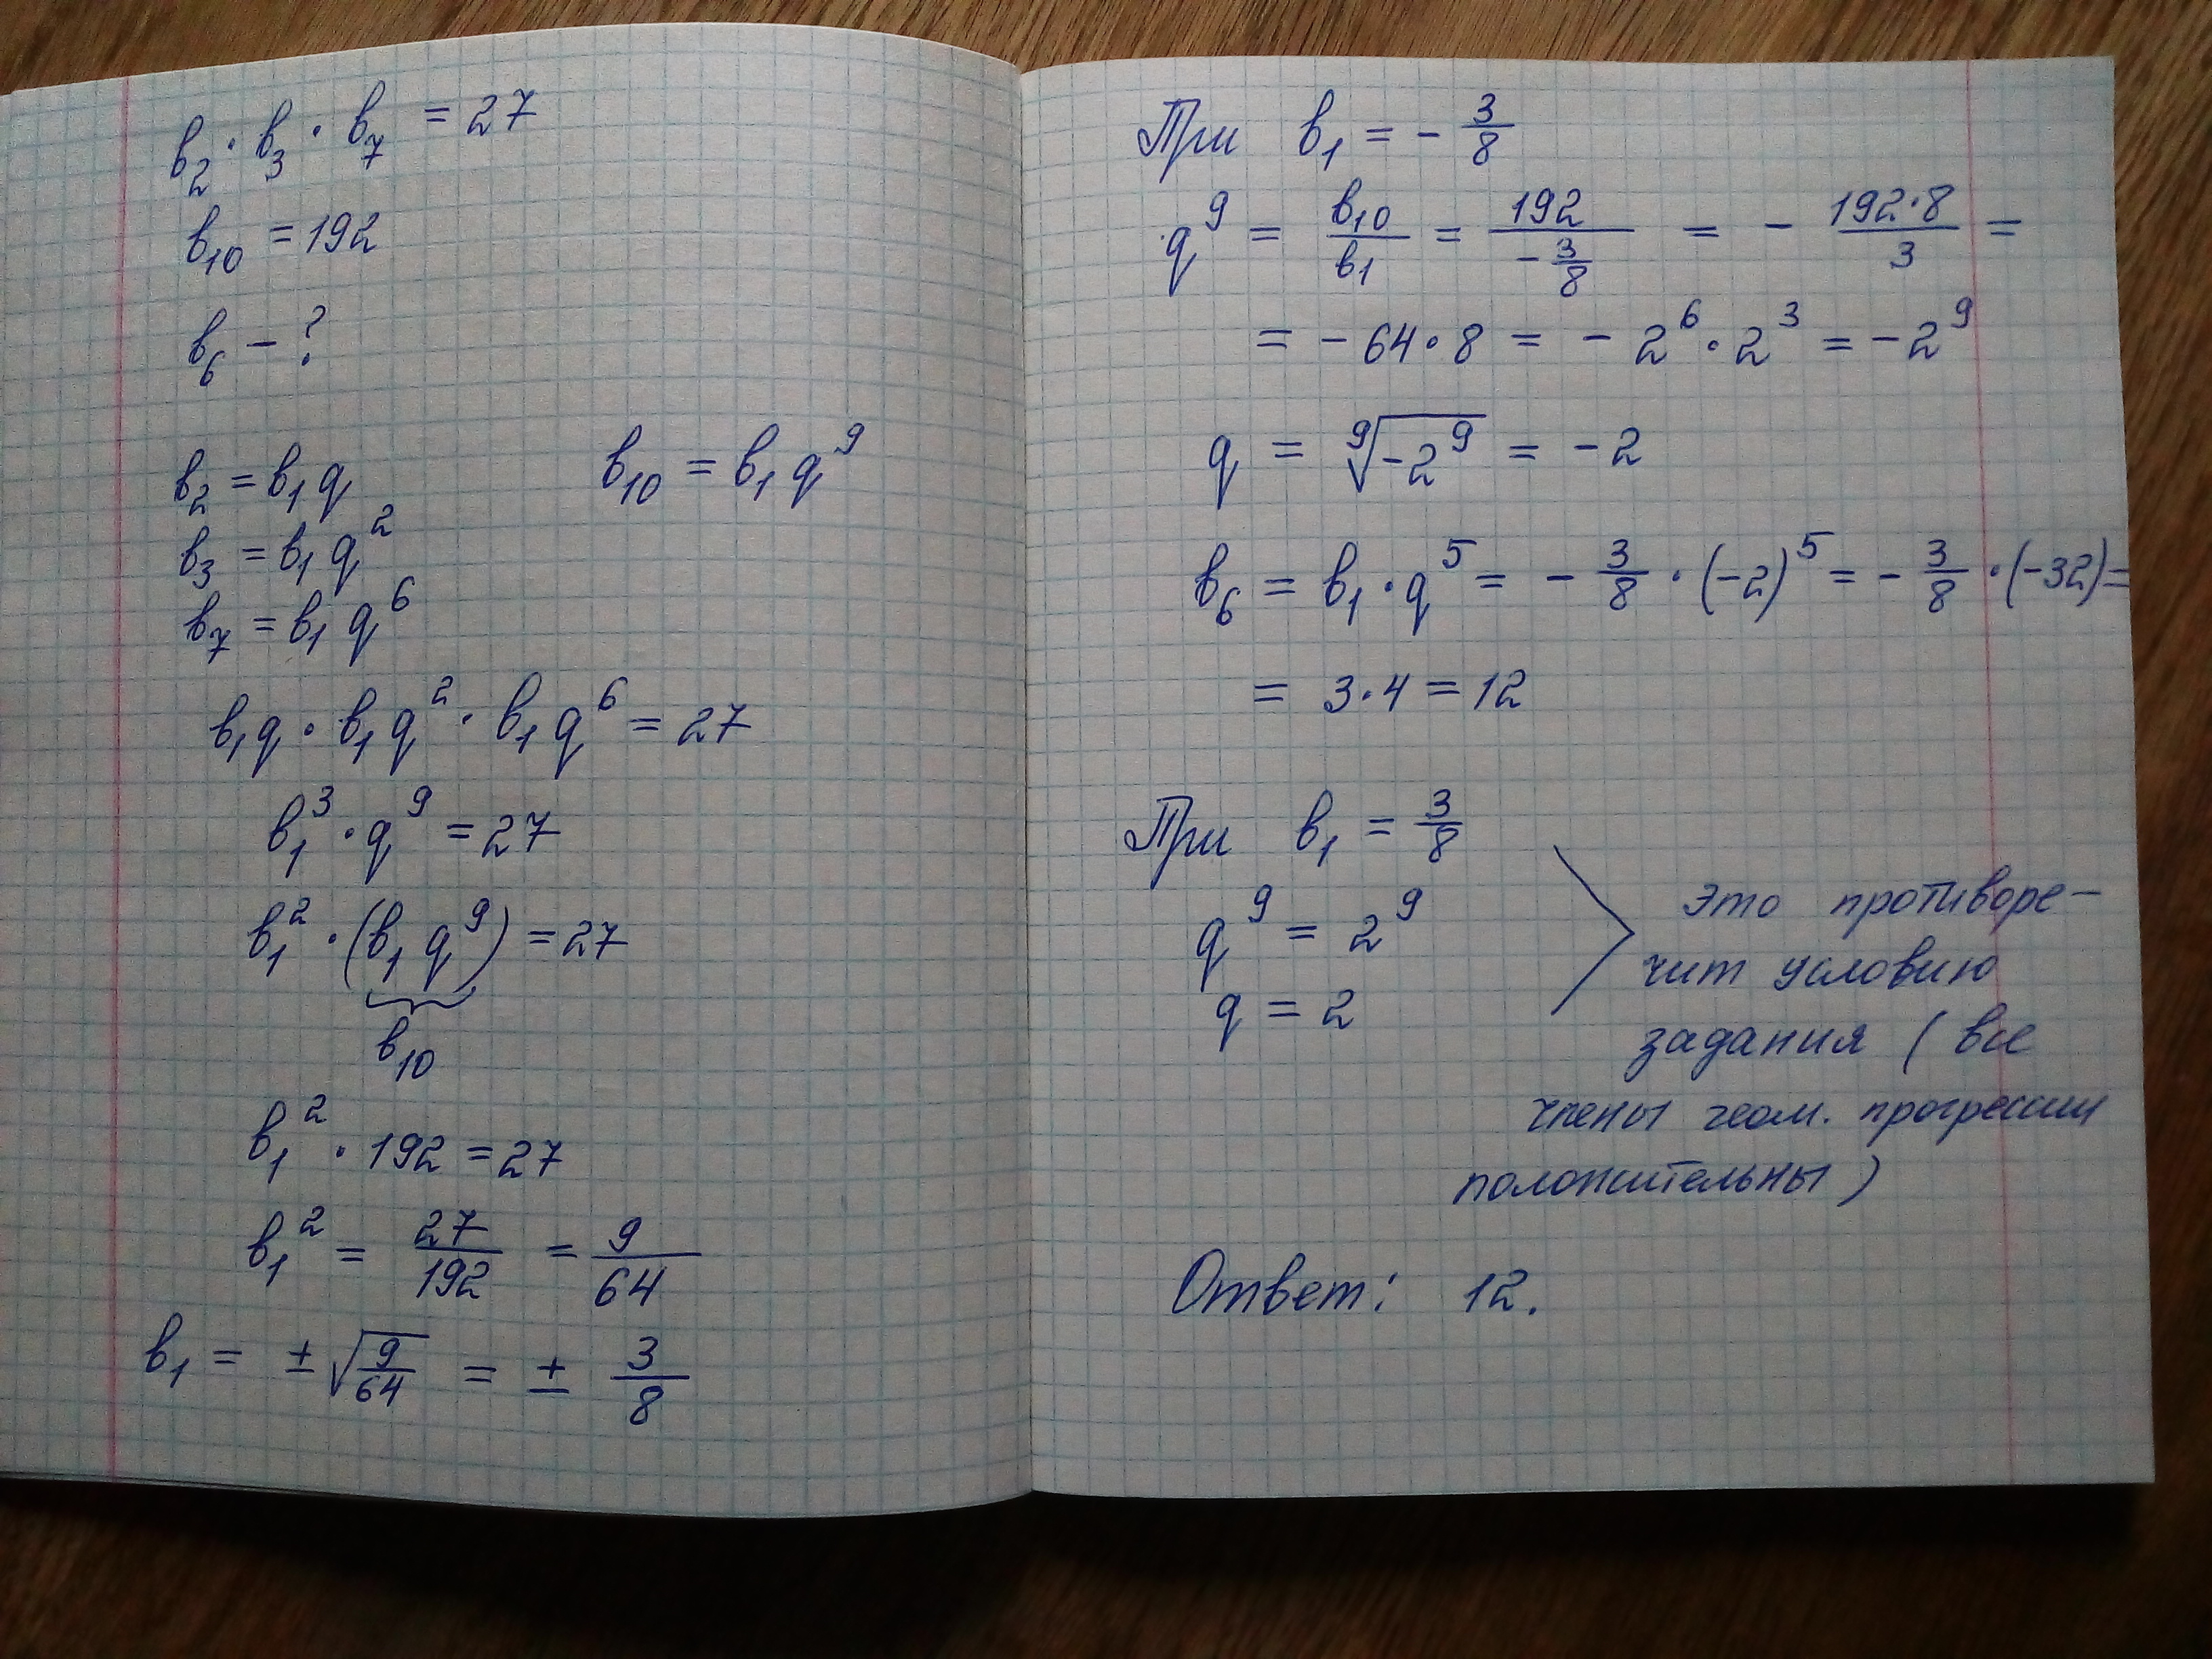 b₂ · b₃ · b₇ = 27
b₁₀ = 192
b₆ – ?
b₂ = b₁ q b₁₀ = b₁ q⁹
b₃ = b₁ q²
b₇ = b₁ q⁶
b₁q · b₁q² · b₁q⁶ = 27
b₁³ · q⁹ = 27
b₁² · (b₁ q⁹) = 27
b₁₀
b₁² · 192 = 27
b₁² = 27/192 = 9/64
b₁ = ± √(9/64) = ± 3/8
При b₁ = - 3/8
q⁹ = b₁₀/b₁ = 192/(-3/8) = - 192·8/3 =
= - 64 · 8 = - 2⁶ · 2³ = - 2⁹
q = ⁹√(-2⁹) = - 2
b₆ = b₁ · q⁵ = - 3/8 · (-2)⁵ = - 3/8 · (-32) =
= 3·4 = 12
При b₁ = 3/8
q⁹ = 2⁹
q = 2
это противоре-
чит условию
задания (все
члены геом. прогрессии
положительны)
Ответ: 12.